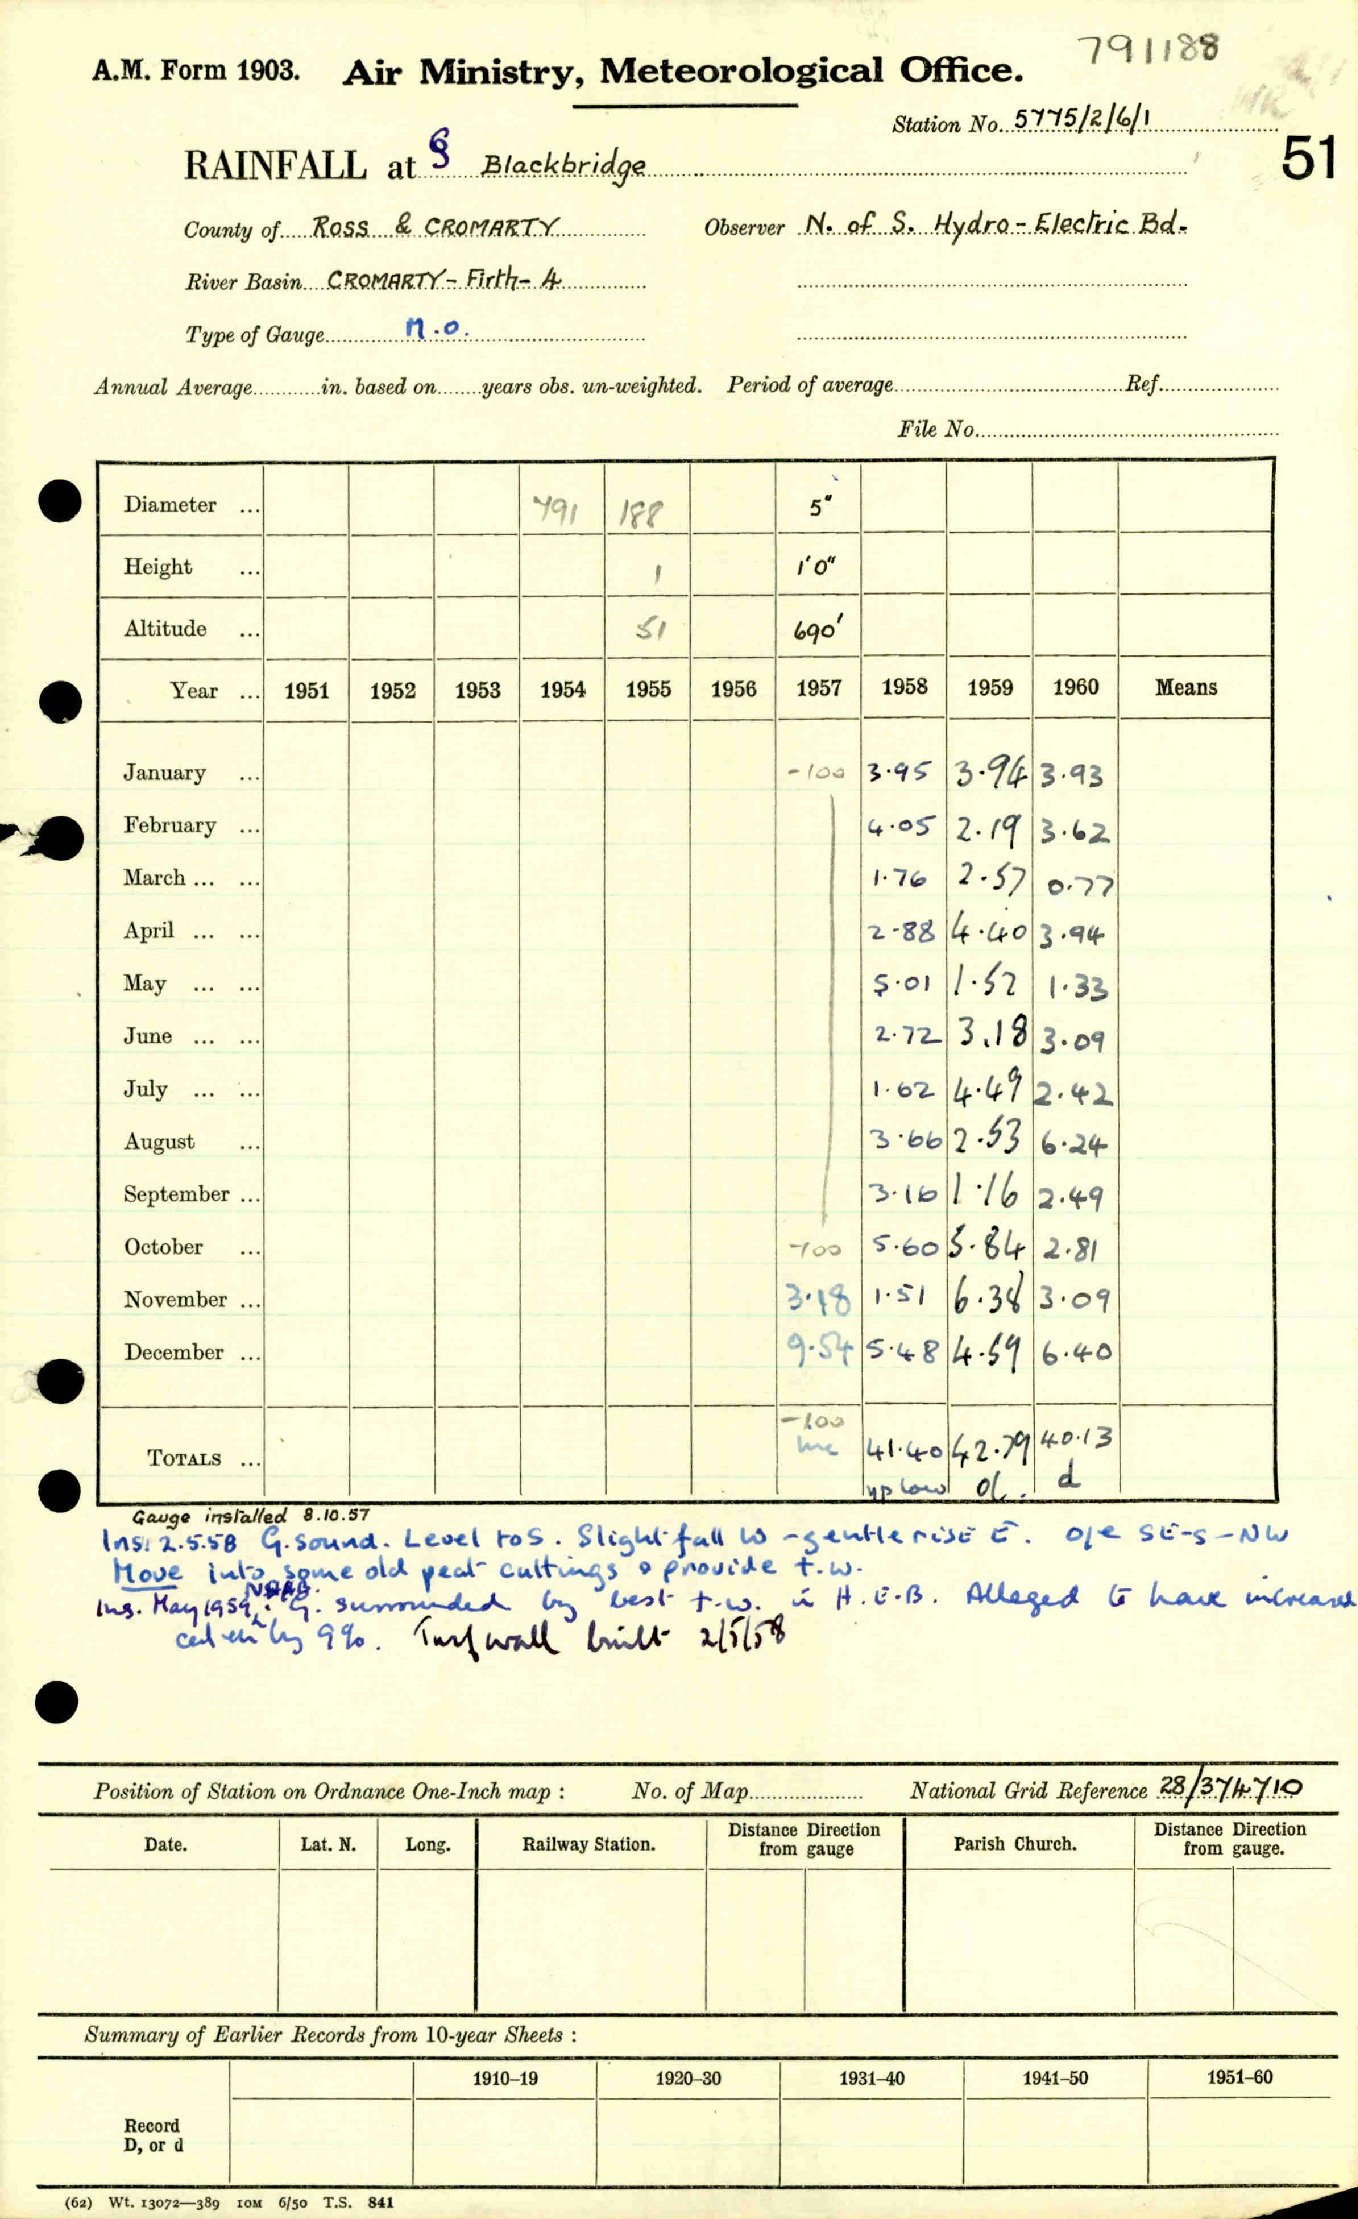 791188
A.M. Form 1903. Air Ministry, Meteorological Office.
Station No. 5775/2/6/1
51
RAINFALL at § Blackbridge
County of Ross & CROMARTY Observer N. of S. Hydro-Electric Bd.
River Basin CROMARTY-Firth-4
Type of Gauge M.O.
Annual Average in. based on years obs. un-weighted. Period of average Ref.
File No.
Diameter ... 791 188 5"
Height ... 1 1'0"
Altitude ... 51 690'
Year ... 1951 1952 1953 1954 1955 1956 1957 1958 1959 1960 Means
January ... -100 3.95 3.94 3.93
February ... 4.05 2.19 3.62
March ... ... 1.76 2.57 0.77
April ... ... 2.88 4.40 3.94
May ... ... 5.01 1.52 1.33
June ... ... 2.72 3.18 3.09
July ... ... 1.62 4.49 2.42
August ... 3.66 2.53 6.24
September ... 3.16 1.16 2.49
October ... -100 5.60 5.84 2.81
November ... 3.18 1.51 6.38 3.09
December ... 9.54 5.48 4.59 6.40
-100
TOTALS ... inc 41.40 42.79 40.13
d
Gauge installed 8.10.57
Ins. 2.5.58 G. sound. Level to S. Slight fall W - gentle rise E. o/e SE-S-NW
Move into some old peat cuttings & provide t.w.
Ins. May 1959. G. surrounded by best t.w. in H.E.B. Alleged to have increased
catch by 9%. Turf wall built 2/5/58
Position of Station on Ordnance One-Inch map : No. of Map National Grid Reference 28/374710
Date. Lat. N. Long. Railway Station. Distance Direction from gauge Parish Church. Distance Direction from gauge.
Summary of Earlier Records from 10-year Sheets :
1910–19 1920–30 1931–40 1941–50 1951–60
Record
D, or d
(62) Wt. 13072—389 10M 6/50 T.S. 841